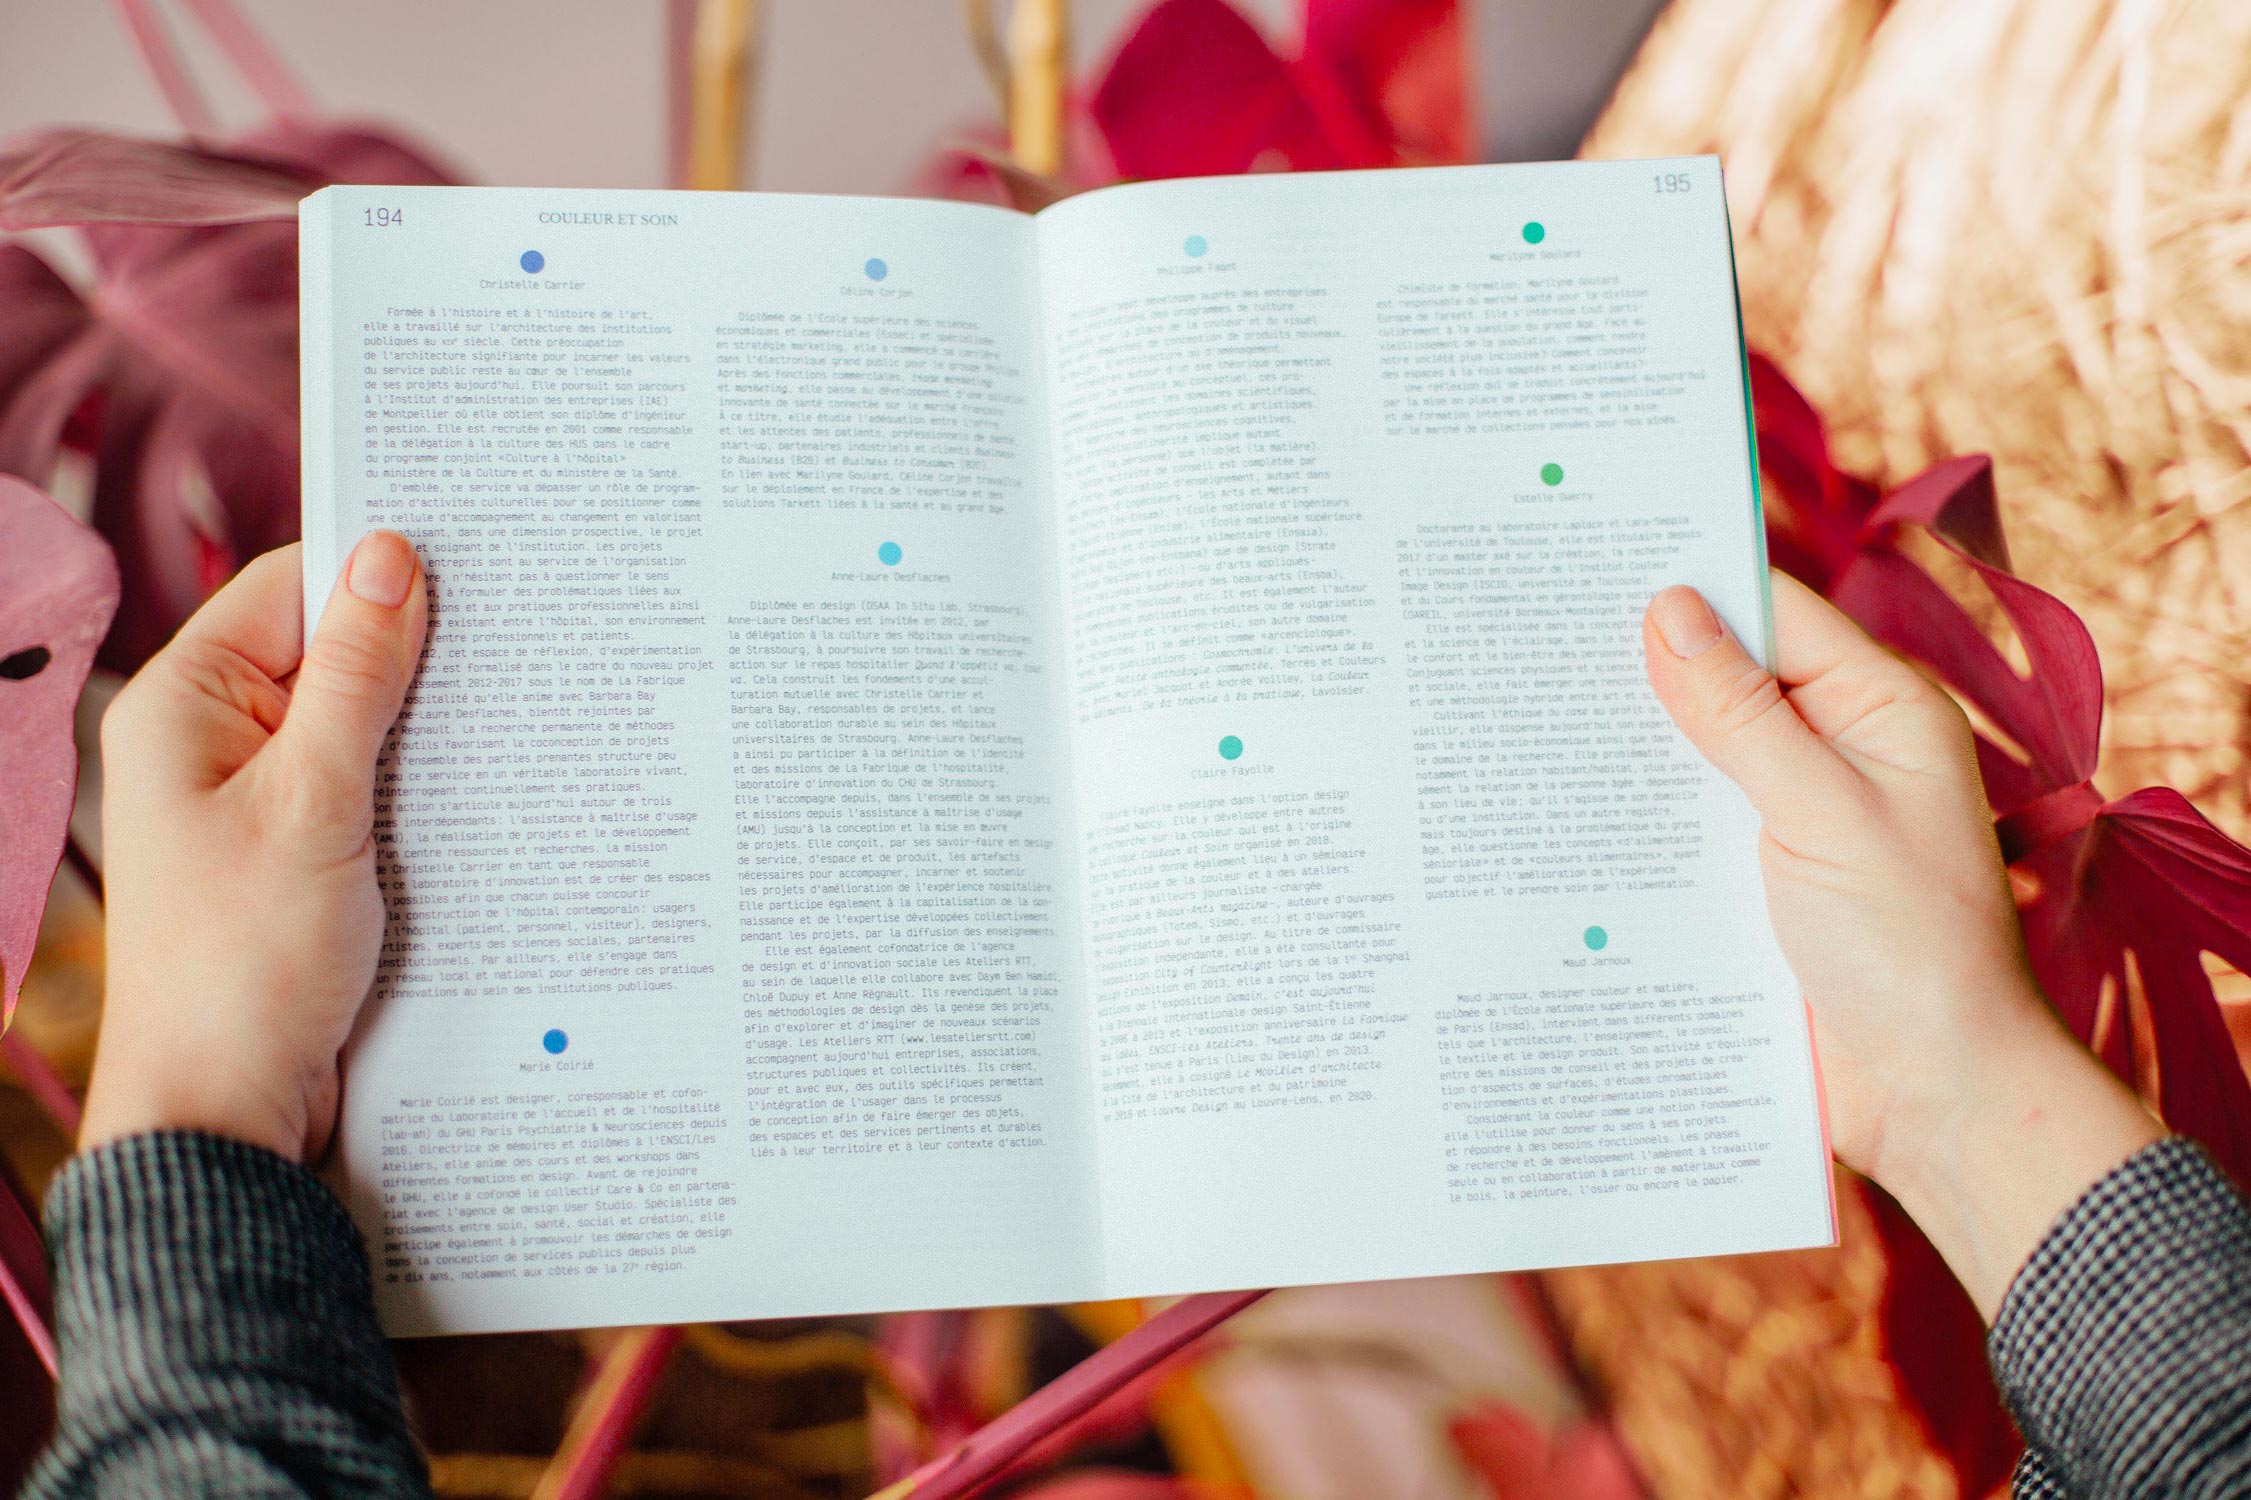 194
COULEUR ET SOIN
Christelle Carrier
Formée à l'histoire et à l'histoire de l'art,
elle a travaillé sur l'architecture des institutions
publiques au XIXᵉ siècle. Cette préoccupation
de l'architecture signifiante pour incarner les valeurs
du service public reste au cœur de l'ensemble
de ses projets aujourd'hui. Elle poursuit son parcours
à l'Institut d'administration des entreprises (IAE)
de Montpellier où elle obtient son diplôme d'ingénieur
en gestion. Elle est recrutée en 2001 comme responsable
de la délégation à la culture des HUS dans le cadre
du programme conjoint «Culture à l'hôpital»
du ministère de la Culture et du ministère de la Santé.
D'emblée, ce service va dépasser un rôle de program-
mation d'activités culturelles pour se positionner comme
une cellule d'accompagnement au changement en valorisant
duisant, dans une dimension prospective, le projet
et soignant de l'institution. Les projets
entrepris sont au service de l'organisation
n'hésitant pas à questionner le sens
à formuler des problématiques liées aux
et aux pratiques professionnelles ainsi
existant entre l'hôpital, son environnement
entre professionnels et patients.
cet espace de réflexion, d'expérimentation
est formalisé dans le cadre du nouveau projet
2012-2017 sous le nom de La Fabrique
qu'elle anime avec Barbara Bay
Desflaches, bientôt rejointes par
Regnault. La recherche permanente de méthodes
d'outils favorisant la coconception de projets
par l'ensemble des parties prenantes structure peu
à peu ce service en un véritable laboratoire vivant,
réinterrogeant continuellement ses pratiques.
Son action s'articule aujourd'hui autour de trois
axes interdépendants: l'assistance à maîtrise d'usage
(AMU), la réalisation de projets et le développement
d'un centre ressources et recherches. La mission
de Christelle Carrier en tant que responsable
de ce laboratoire d'innovation est de créer des espaces
possibles afin que chacun puisse concourir
la construction de l'hôpital contemporain: usagers
l'hôpital (patient, personnel, visiteur), designers,
artistes, experts des sciences sociales, partenaires
institutionnels. Par ailleurs, elle s'engage dans
un réseau local et national pour défendre ces pratiques
d'innovations au sein des institutions publiques.
Marie Coirié
Marie Coirié est designer, coresponsable et cofon-
datrice du Laboratoire de l'accueil et de l'hospitalité
(lab-ah) du GHU Paris Psychiatrie & Neurosciences depuis
2016. Directrice de mémoires et diplômes à l'ENSCI/Les
Ateliers, elle anime des cours et des workshops dans
différentes formations en design. Avant de rejoindre
le GHU, elle a cofondé le collectif Care & Co en partena-
riat avec l'agence de design User Studio. Spécialiste des
croisements entre soin, santé, social et création, elle
participe également à promouvoir les démarches de design
dans la conception de services publics depuis plus
de dix ans, notamment aux côtés de la 27ᵉ région.
Céline Corjon
Diplômée de l'École supérieure des sciences
économiques et commerciales (Essec) et spécialisée
en stratégie marketing, elle a commencé sa carrière
dans l'électronique grand public pour le groupe
Après des fonctions commerciales, trade marketing
et marketing, elle passe au développement d'une solution
innovante de santé connectée sur le marché français.
À ce titre, elle étudie l'adéquation entre l'offre
et les attentes des patients, professionnels de santé,
start-up, partenaires industriels et clients Business
to Business (B2B) et Business to Consumer (B2C).
En lien avec Marilyne Goulard, Céline Corjon travaille
sur le déploiement en France de l'expertise et des
solutions Tarkett liées à la santé et au grand âge.
Anne-Laure Desflaches
Diplômée en design (DSAA In Situ Lab, Strasbourg),
Anne-Laure Desflaches est invitée en 2012, par
la délégation à la culture des Hôpitaux universitaires
de Strasbourg, à poursuivre son travail de recherche-
action sur le repas hospitalier Quand l'appétit va, tout
va. Cela construit les fondements d'une accul-
turation mutuelle avec Christelle Carrier et
Barbara Bay, responsables de projets, et lance
une collaboration durable au sein des Hôpitaux
universitaires de Strasbourg. Anne-Laure Desflaches
a ainsi pu participer à la définition de l'identité
et des missions de La Fabrique de l'hospitalité,
laboratoire d'innovation du CHU de Strasbourg.
Elle l'accompagne depuis, dans l'ensemble de ses projets
et missions depuis l'assistance à maîtrise d'usage
(AMU) jusqu'à la conception et la mise en œuvre
de projets. Elle conçoit, par ses savoir-faire en design
de service, d'espace et de produit, les artefacts
nécessaires pour accompagner, incarner et soutenir
les projets d'amélioration de l'expérience hospitalière.
Elle participe également à la capitalisation de la con-
naissance et de l'expertise développées collectivement
pendant les projets, par la diffusion des enseignements.
Elle est également cofondatrice de l'agence
de design et d'innovation sociale Les Ateliers RTT,
au sein de laquelle elle collabore avec Daym Ben Hamidi,
Chloë Dupuy et Anne Régnault. Ils revendiquent la place
des méthodologies de design dès la genèse des projets,
afin d'explorer et d'imaginer de nouveaux scénarios
d'usage. Les Ateliers RTT (www.lesateliersrtt.com)
accompagnent aujourd'hui entreprises, associations,
structures publiques et collectivités. Ils créent,
pour et avec eux, des outils spécifiques permettant
l'intégration de l'usager dans le processus
de conception afin de faire émerger des objets,
des espaces et des services pertinents et durables
liés à leur territoire et à leur contexte d'action.
195
Philippe Fagot
Philippe Fagot développe auprès des entreprises
des programmes de culture
place de la couleur et du visuel
de conception de produits nouveaux,
ou d'aménagement.
d'un axe théorique permettant
sensible au conceptuel, ces pro-
les domaines scientifiques,
anthropologiques et artistiques.
des neurosciences cognitives,
implique autant
(la personne) que l'objet (la matière).
activité de conseil est complétée par
implication d'enseignement, autant dans
d'ingénieurs - les Arts et Métiers
(ex-Ensam), l'École nationale d'ingénieurs
(Enise), l'École nationale supérieure
et d'industrie alimentaire (Ensaia),
Dijon (ex-Ensbana) que de design (Strate
etc.) -ou d'arts appliqués-
nationale supérieure des beaux-arts (Ensba),
de Toulouse, etc. Il est également l'auteur
publications érudites ou de vulgarisation
la couleur et l'arc-en-ciel, son autre domaine
Il se définit comme «arcenciologue».
publications : Cosmochromie. L'univers de la
anthologie commentée, Terres et Couleurs
Jacquot et Andrée Veilley, La Couleur
De la théorie à la pratique, Lavoisier.
Claire Fayolle
Claire Fayolle enseigne dans l'option design
Ensad Nancy. Elle y développe entre autres
recherche sur la couleur qui est à l'origine
Couleur et Soin organisé en 2018.
activité donne également lieu à un séminaire
la pratique de la couleur et à des ateliers.
Elle est par ailleurs journaliste -chargée
rubrique à Beaux-Arts magazine-, auteure d'ouvrages
monographiques (Totem, Sismo, etc.) et d'ouvrages
vulgarisation sur le design. Au titre de commissaire
d'exposition indépendante, elle a été consultante pour
exposition City of Counterlight lors de la 1ʳᵉ Shanghai
Design Exhibition en 2013, elle a conçu les quatre
éditions de l'exposition Demain, c'est aujourd'hui
à la Biennale internationale design Saint-Étienne
de 2006 à 2013 et l'exposition anniversaire La Fabrique
des idées, ENSCI-Les Ateliers. Trente ans de design
qui s'est tenue à Paris (Lieu du Design) en 2013.
Récemment, elle a cosigné Le Mobilier d'architecte
à la Cité de l'architecture et du patrimoine
en 2019 et Louvre Design au Louvre-Lens, en 2020.
Marilyne Goulard
Chimiste de formation, Marilyne Goulard
est responsable du marché santé pour la division
Europe de Tarkett. Elle s'intéresse tout parti-
culièrement à la question du grand âge. Face au
vieillissement de la population, comment rendre
notre société plus inclusive? Comment concevoir
des espaces à la fois adaptés et accueillants?
Une réflexion qui se traduit concrètement aujourd'hui
par la mise en place de programmes de sensibilisation
et de formation internes et externes, et la mise
sur le marché de collections pensées pour nos aînés.
Estelle Guerry
Doctorante au laboratoire Laplace et Lara-Seppia
de l'université de Toulouse, elle est titulaire depuis
2017 d'un master axé sur la création, la recherche
et l'innovation en couleur de l'Institut Couleur
Image Design (ISCID, université de Toulouse),
et du Cours fondamental en gérontologie
(OAREIL, université Bordeaux-Montaigne)
Elle est spécialisée dans la conception
et la science de l'éclairage, dans le but
le confort et le bien-être des personnes
Conjuguant sciences physiques et sciences
et sociale, elle fait émerger une
et une méthodologie hybride entre art et
Cultivant l'éthique du care au profit du
vieillir, elle dispense aujourd'hui son
dans le milieu socio-économique ainsi que dans
le domaine de la recherche. Elle problématise
notamment la relation habitant/habitat, plus préci-
sément la relation de la personne âgée -dépendante-
à son lieu de vie; qu'il s'agisse de son domicile
ou d'une institution. Dans un autre registre,
mais toujours destiné à la problématique du grand
âge, elle questionne les concepts «d'alimentation
sénioriale» et de «couleurs alimentaires», ayant
pour objectif l'amélioration de l'expérience
gustative et le prendre soin par l'alimentation.
Maud Jarnoux
Maud Jarnoux, designer couleur et matière,
diplômée de l'École nationale supérieure des arts décoratifs
de Paris (Ensad), intervient dans différents domaines
tels que l'architecture, l'enseignement, le conseil,
le textile et le design produit. Son activité s'équilibre
entre des missions de conseil et des projets de créa-
tion d'aspects de surfaces, d'études chromatiques
d'environnements et d'expérimentations plastiques.
Considérant la couleur comme une notion fondamentale,
elle l'utilise pour donner du sens à ses projets
et répondre à des besoins fonctionnels. Les phases
de recherche et de développement l'amènent à travailler
seule ou en collaboration à partir de matériaux comme
le bois, la peinture, l'osier ou encore le papier.